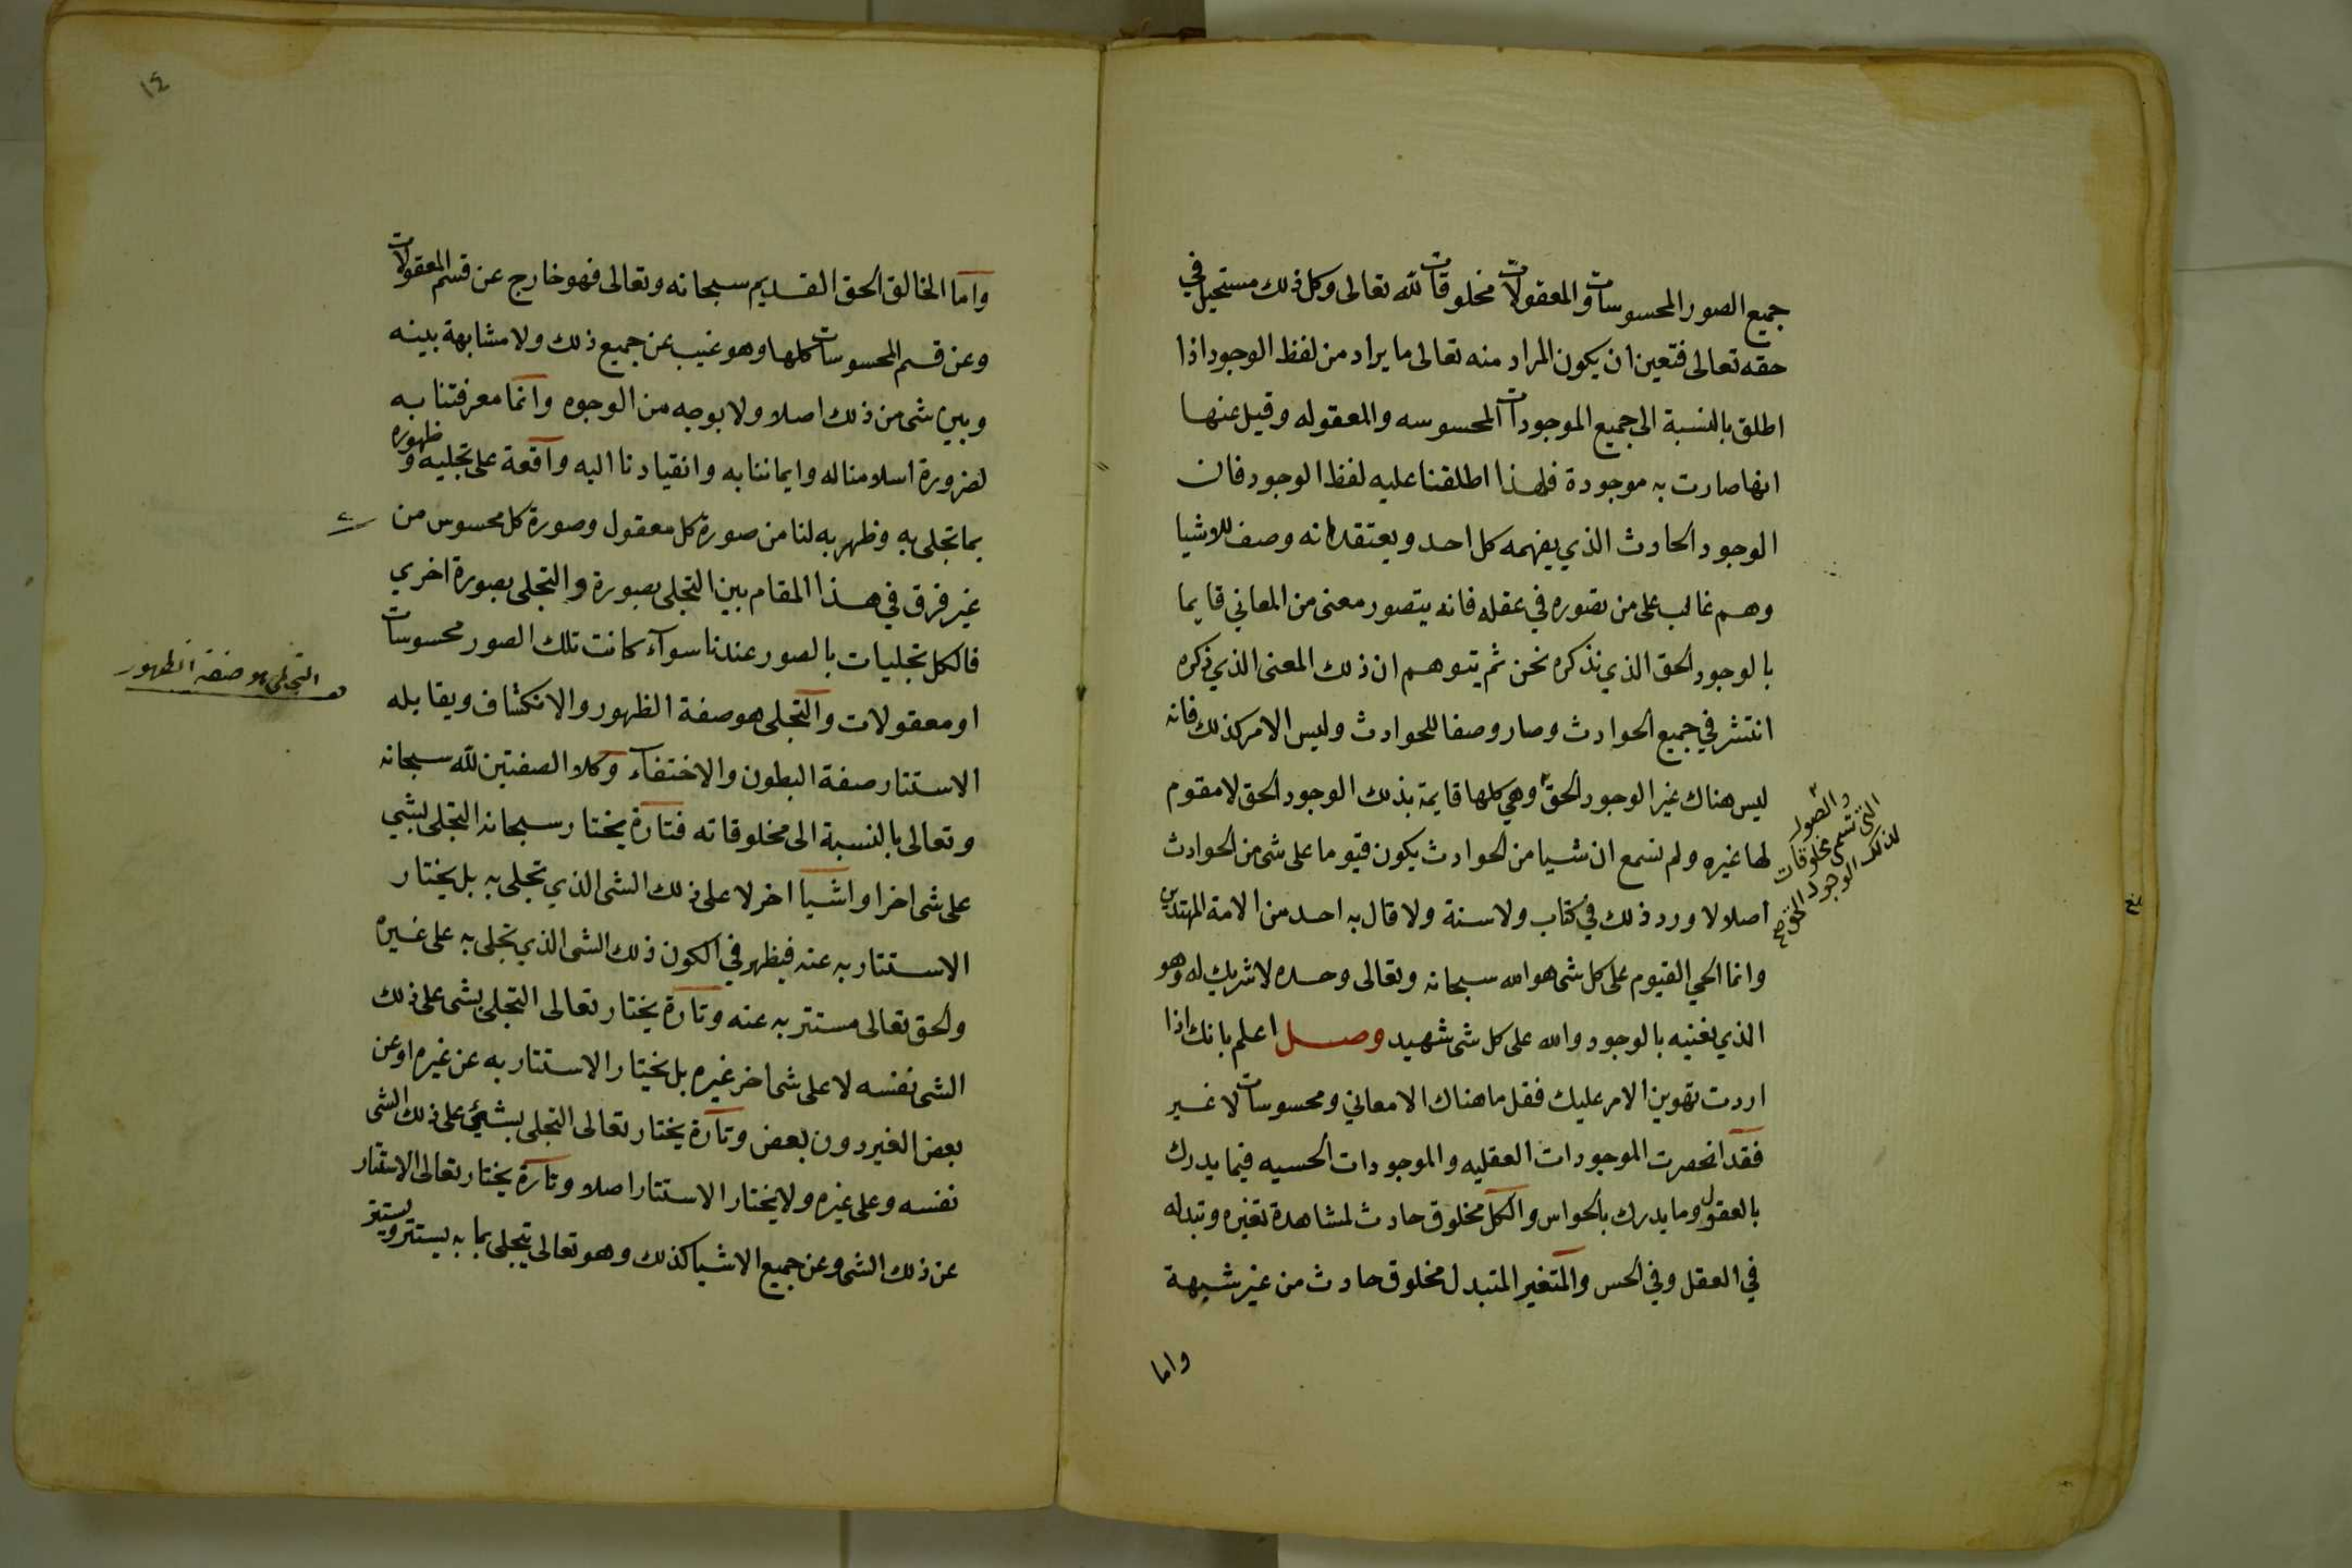 جميع الصور المحسوسات والمعقولات مخلوقات لله تعالى وكل ذلك مستحيل في
حقه تعالى فتعين ان يكون المراد منه تعالى ما يراد من لفظ الوجود اذا
اطلق بالنسبة الى جميع الموجودات المحسوسه والمعقوله وقيل عنها
انها صارت به موجودة فلهذا اطلقنا عليه لفظ الوجود فان
الوجود الحادث الذي يفهمه كل احد ويعتقد انه وصف للاشيا
وهم غالب على من تصوره في عقله فانه يتصور معنى من المعاني قايما
بالوجود الحق الذي نذكره نحن ثم يتوهم ان ذلك المعنى الذي ذكره
انتشر في جميع الحوادث وصار وصفا للحوادث وليس الامر كذلك فانه
ليس هناك غير الوجود الحق وهي كلها قايمة بذلك الوجود الحق لا مقوم
لها غيره ولم نسمع ان شيا من الحوادث يكون قيوما على شى من الحوادث
اصلا لا ورد ذلك في كتاب ولا سنة ولا قال به احد من الامة المهتدين
وانما الحي القيوم على كل شى هو الله سبحانه وتعالى وحده لا شريك له وهو
الذي نعنيه بالوجود والله على كل شى شهيد وصل اعلم بانك اذا
اردت تهوين الامر عليك فقل ما هناك الا معاني ومحسوسات لا غير
فقد انحصرت الموجودات العقليه والموجودات الحسيه فيما يدرك
بالعقول وما يدرك بالحواس والكل مخلوق حادث لمشاهدة تغيره وتبدله
في العقل وفي الحس والمتغير المتبدل مخلوق حادث من غير شبهة
واما
والصور
التى تسمى مخلوقات
لذلك الوجود الحق صح
١٤
واما الخالق الحق القديم سبحانه وتعالى فهو خارج عن قسم المعقولات
وعن قسم المحسوسات كلها وهو غيب عن جميع ذلك ولا مشابهة بينه
وبين شى من ذلك اصلا ولا بوجه من الوجوه وانما معرفتنا به
لضرورة اسلامنا له وايماننا به وانقيادنا اليه واقعة على تجليه وظهوره
بما تجلى به وظهر به لنا من صورة كل معقول وصورة كل محسوس من
غير فرق في هذا المقام بين التجلى بصورة والتجلى بصورة اخري
فالكل تجليات بالصور عندنا سوآء كانت تلك الصور محسوسات
او معقولات والتجلى هو صفة الظهور والانكشاف ويقابله
الاستتار صفة البطون والاختفآء وكلا الصفتين لله سبحانه
وتعالى بالنسبة الى مخلوقاته فتارة يختار سبحانه التجلى بشي
على شى اخر او اشيآ اخر لا على ذلك الشى الذي تجلى به بل يختار
الاستتار به عنه فيظهر في الكون ذلك الشى الذي تجلى به على غيره
والحق تعالى مستتر به عنه وتارة يختار تعالى التجلى بشى على ذلك
الشى نفسه لا على شى اخر غيره بل يختار الاستتار به عن غيره او عن
بعض الغير دون بعض وتارة يختار تعالى التجلى بشئ على ذلك الشى
نفسه وعلى غيره ولا يختار الاستتار اصلا وتارة يختار تعالى الاستتار
عن ذلك الشى وعن جميع الاشيا كذلك وهو تعالى يتجلى بما به يستتر ويستتر
التجلى هو صفة الظهور